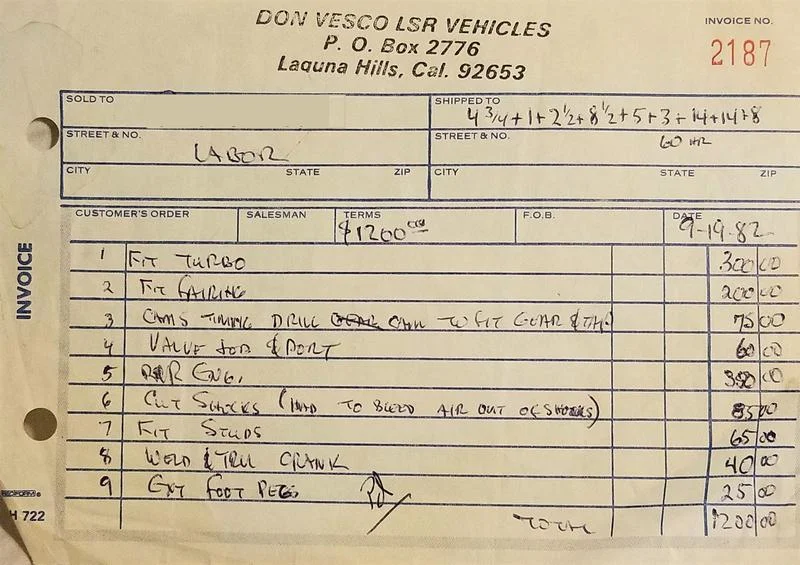 DON VESCO LSR VEHICLES
P. O. Box 2776
Laguna Hills, Cal. 92653
INVOICE NO.
2187
SOLD TO
SHIPPED TO
4 3/4 + 1 + 2 1/2 + 8 1/2 + 5 + 3 + 14 + 14 + 8
STREET & NO.
LABOR
STREET & NO.
60 HR
CITY STATE ZIP
CITY STATE ZIP
CUSTOMER'S ORDER SALESMAN TERMS F.O.B. DATE
$1200 00 9-19-82
INVOICE
1 FIT TURBO 300 00
2 FIT FAIRING 200 00
3 CAMS TIMING DRILL CAM TO FIT GEAR & 75 00
4 VALVE JOB & PORT 60 00
5 R&R ENG. 350 00
6 CUT SHOCKS (HAD TO BLEED AIR OUT OF SHOCKS) 85 00
7 FIT STUDS 65 00
8 WELD & TRU CRANK 40 00
9 EXT FOOT PEGS 25 00
TOTAL 1200 00
REDIFORM
H 722